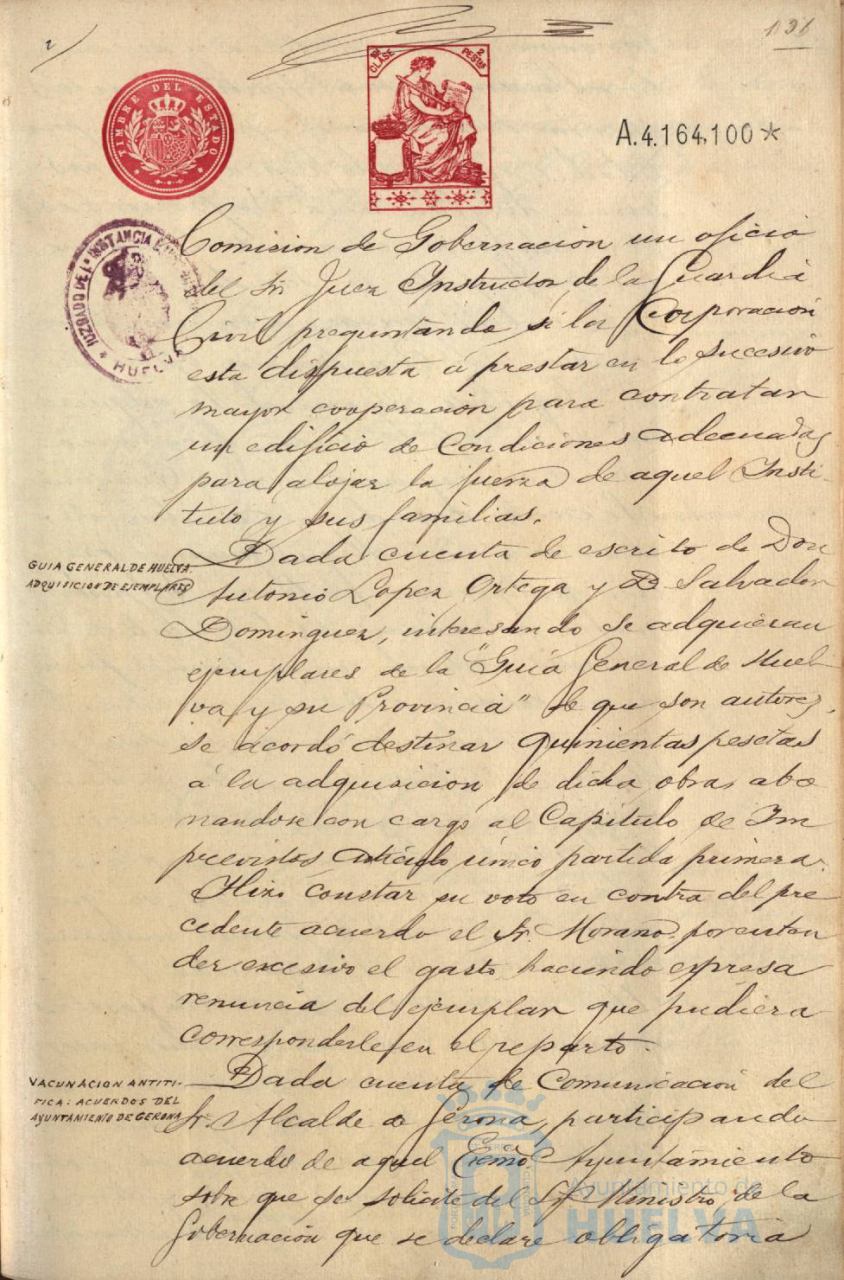 131
TIMBRE DEL ESTADO
CLASE 2 PESETAS
A.4.164,100*
JUZGADO DE 1ª INSTANCIA
HUELVA
Comision de Gobernacion un oficio
del Sr Juez Instructor de la Guardia
Civil preguntando si la Corporacion
esta dispuesta á prestar en lo sucesivo
mayor cooperación para contratar
un edificio de Condiciones adecuadas
para alojar la fuerza de aquel Insti-
tuto y sus familias.
GUIA GENERAL DE HUELVA.
ADQUISICION DE EJEMPLARES
Dada cuenta de escrito de Don
Antonio Lopez Ortega y D. Salvador
Dominguez, interesando se adquieran
ejemplares de la "Guia General de Huel-
va y su Provincia" de que son autores,
se acordó destinar quinientas pesetas
á la adquisicion de dicha obra, abo
nandose con cargo al Capitulo de Im
previstos articulo único partida primera.
Hizo constar su voto en contra del pre
cedente acuerdo el Sr. Morano por enten
der excesivo el gasto haciendo expresa
renuncia del ejemplar que pudiera
corresponderle en el reparto.
VACUNACION ANTITI-
FICA: ACUERDOS DEL
AYUNTAMIENTO DE GERONA
Dada cuenta de Comunicación del
Sr. Alcalde de Gerona, participando
acuerdo de aquel Excmo. Ayuntamiento
sobre que se solicite del Sr. Ministro de la
Gobernación que se declare obligatoria
Ayuntamiento de
HUELVA